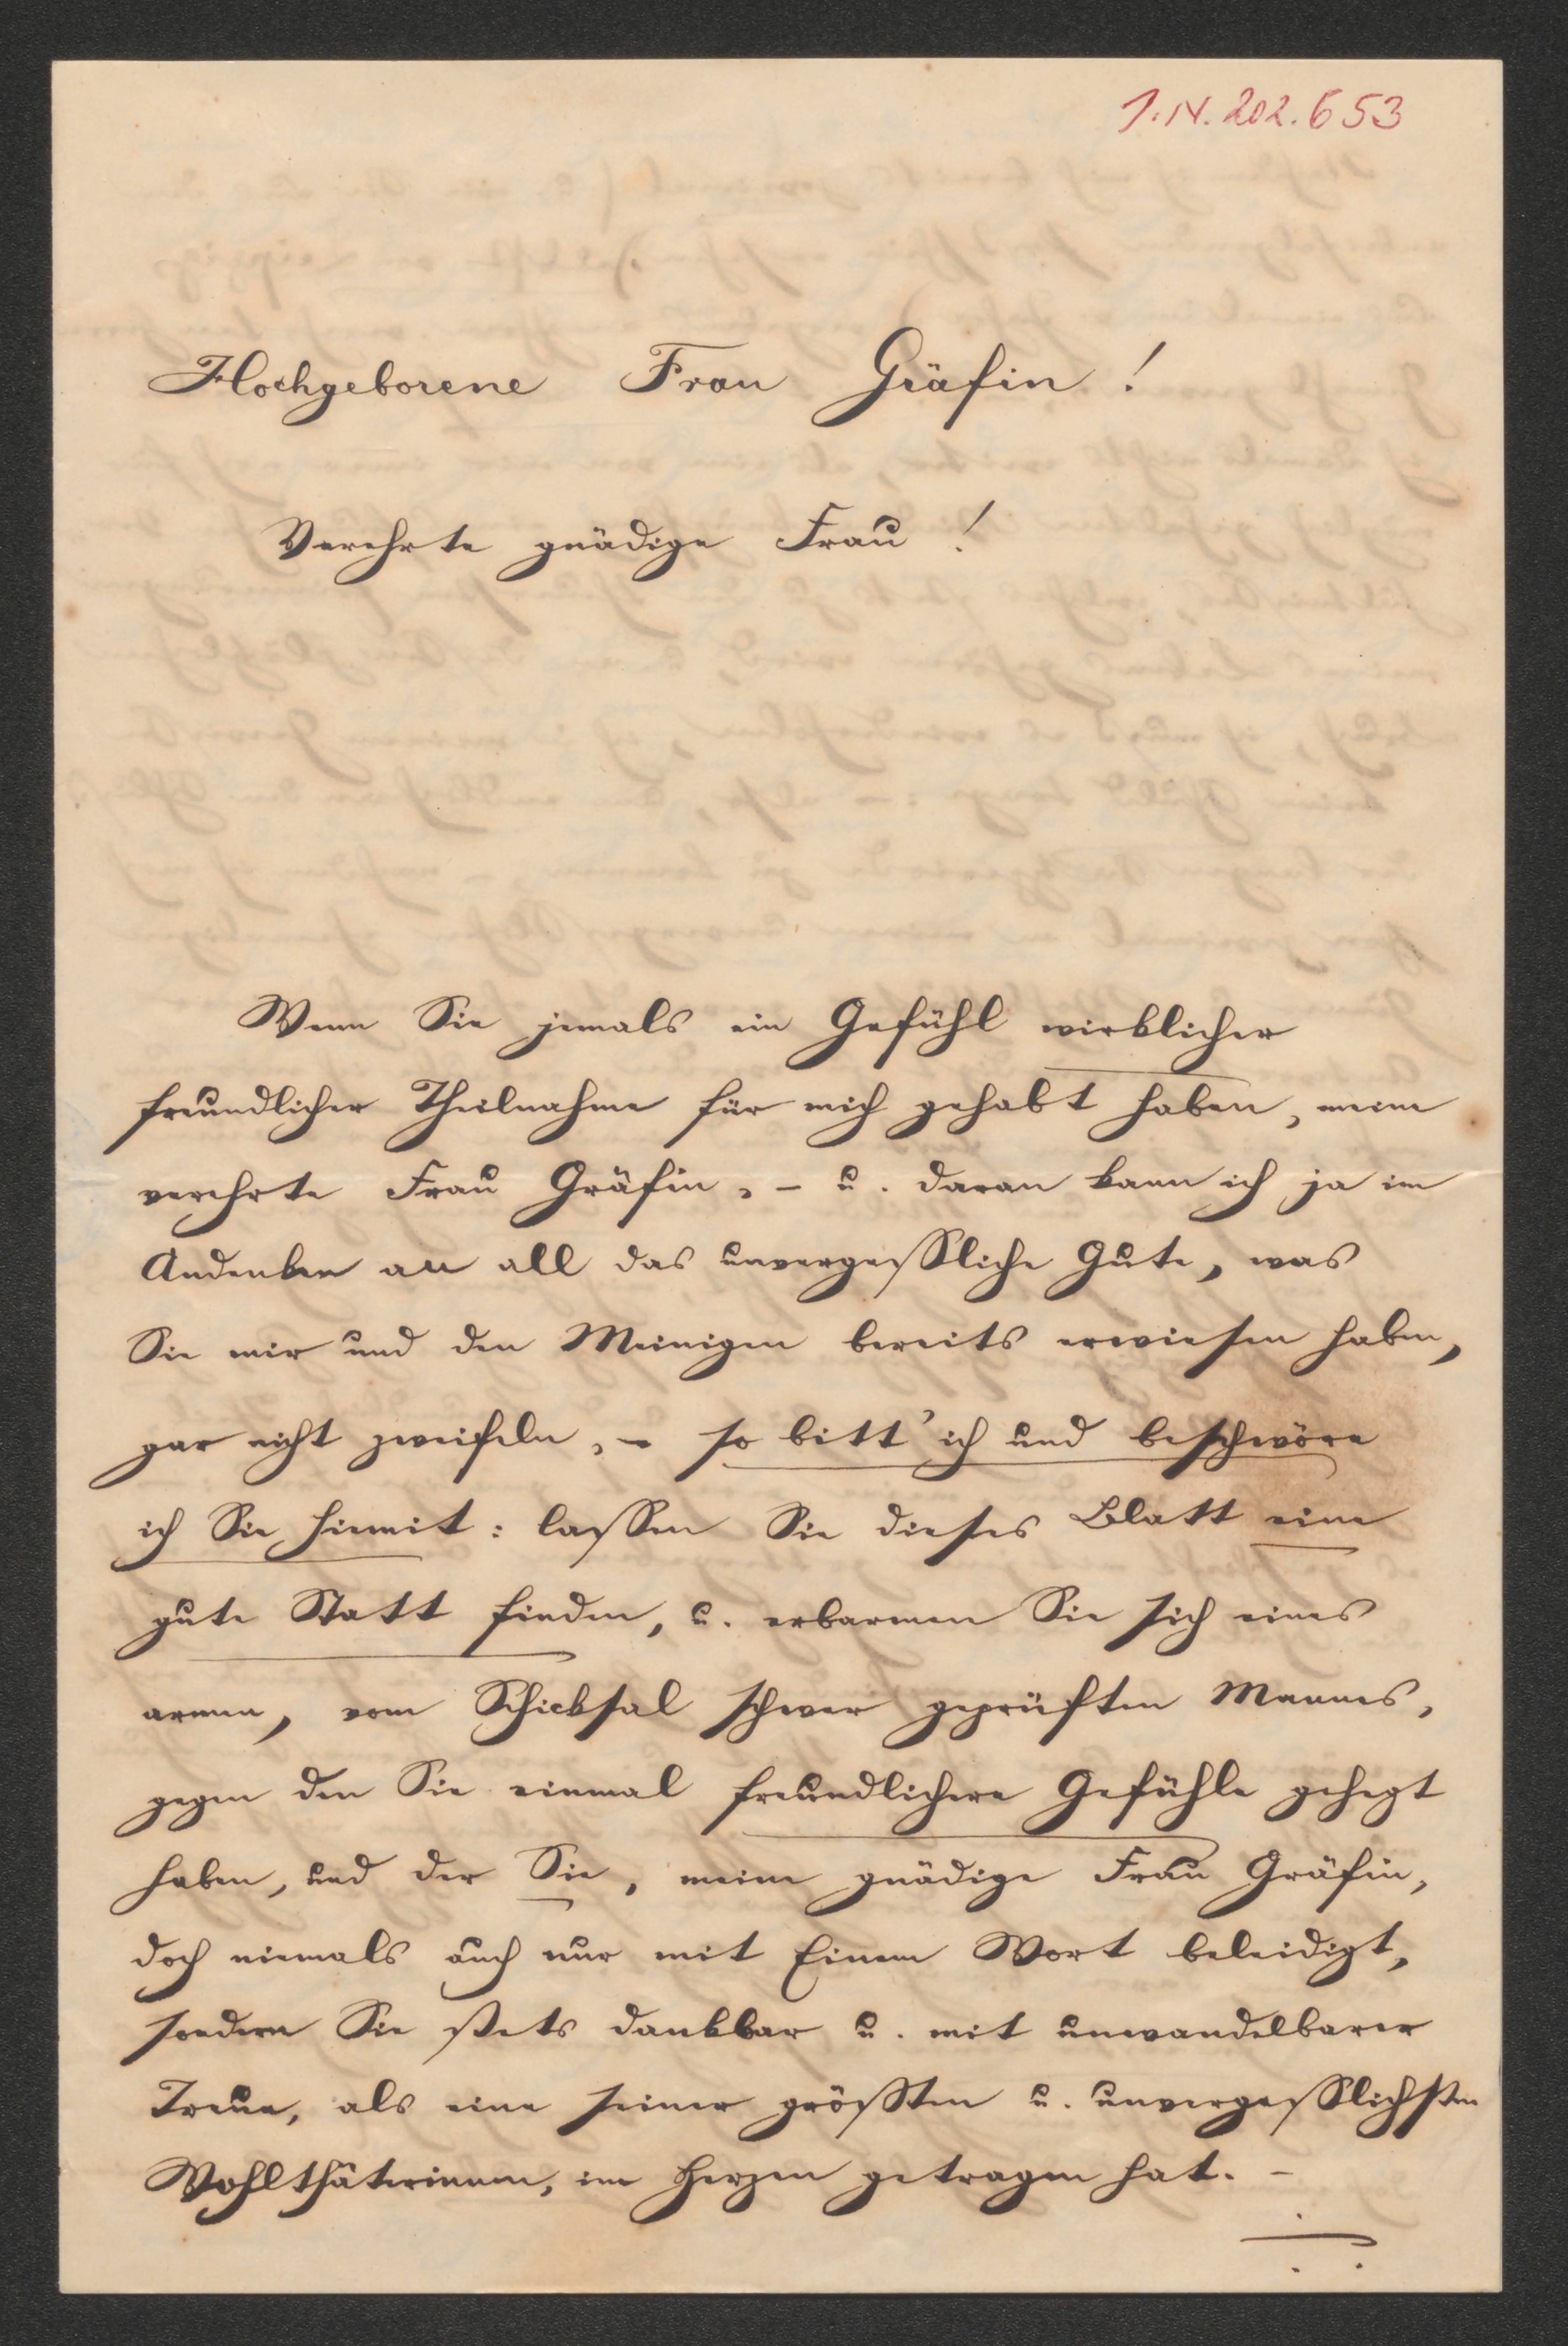 I.N. 202.653
Hochgeborene Frau Gräfin!
Verehrte gnädige Frau!
Wenn Sie jemals ein Gefühl wirklicher
freundlicher Theilnahme für mich gehabt haben, meine
verehrte Frau Gräfin, – u. daran kann ich ja im
Andenken an all das unvergeßliche Gute, was
Sie mir und den Meinigen bereits erwiesen haben,
gar nicht zweifeln, – so bitt' ich und beschwöre
ich Sie hiemit: lassen Sie dieses Blatt eine
gute Statt finden, u. erbarmen Sie sich eines
armen, vom Schicksal schwer geprüften Mannes,
gegen den Sie einmal freundlichere Gefühle gehegt
haben, und der Sie, meine gnädige Frau Gräfin,
doch niemals auch nur mit Einem Wort beleidigt,
sondern Sie stets dankbar u. mit unwandelbarer
Treue, als eine seiner größten u. unvergeßlichsten
Wohlthäterinnen, im Herzen getragen hat. –